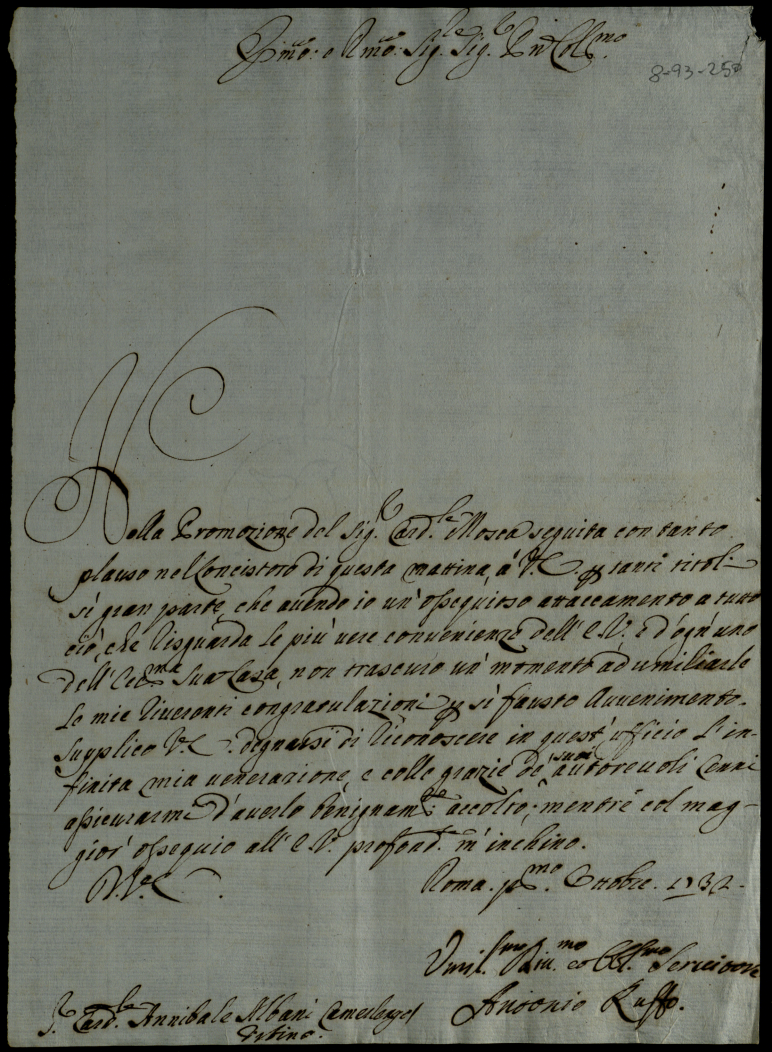 Em̃o: e Rm̃o: Sig.r Sig.r Pr̃on Coll.mo
8-93-250
Nella Promozione del Sig.r Card.le Mosca seguita con tanto
plauso nel Concistoro di questa mattina, à V.E. ꝑ tanti titoli
sì gran parte, che avendo io un' ossequioso attaccamento a tutto
ciò, che risguarda le più vere convenienze dell' E.V. e d'ogn'uno
dell' Ecc.ma Sua Casa, non trascuro un' momento ad umiliarle
le mie riverenti congratulazioni ꝑ sì fausto Avvenimento.
Supplico V.E. degnarsi di riconoscere in quest' ufficio l'in-
finita mia venerazione, e colle grazie de' suoi autorevoli Cenni
assicurarmi d'averlo benignam.te accolto; mentre col mag-
gior' ossequio all' E.V. profond.e m' inchino.
D.V.E.
Roma. p.mo Ottobre. 1732.
Umil.mo Div.mo ed Obl.mo Servitore
Antonio Ruffo.
S.r Card.le Annibale Albani Camerlengo
Urbino.